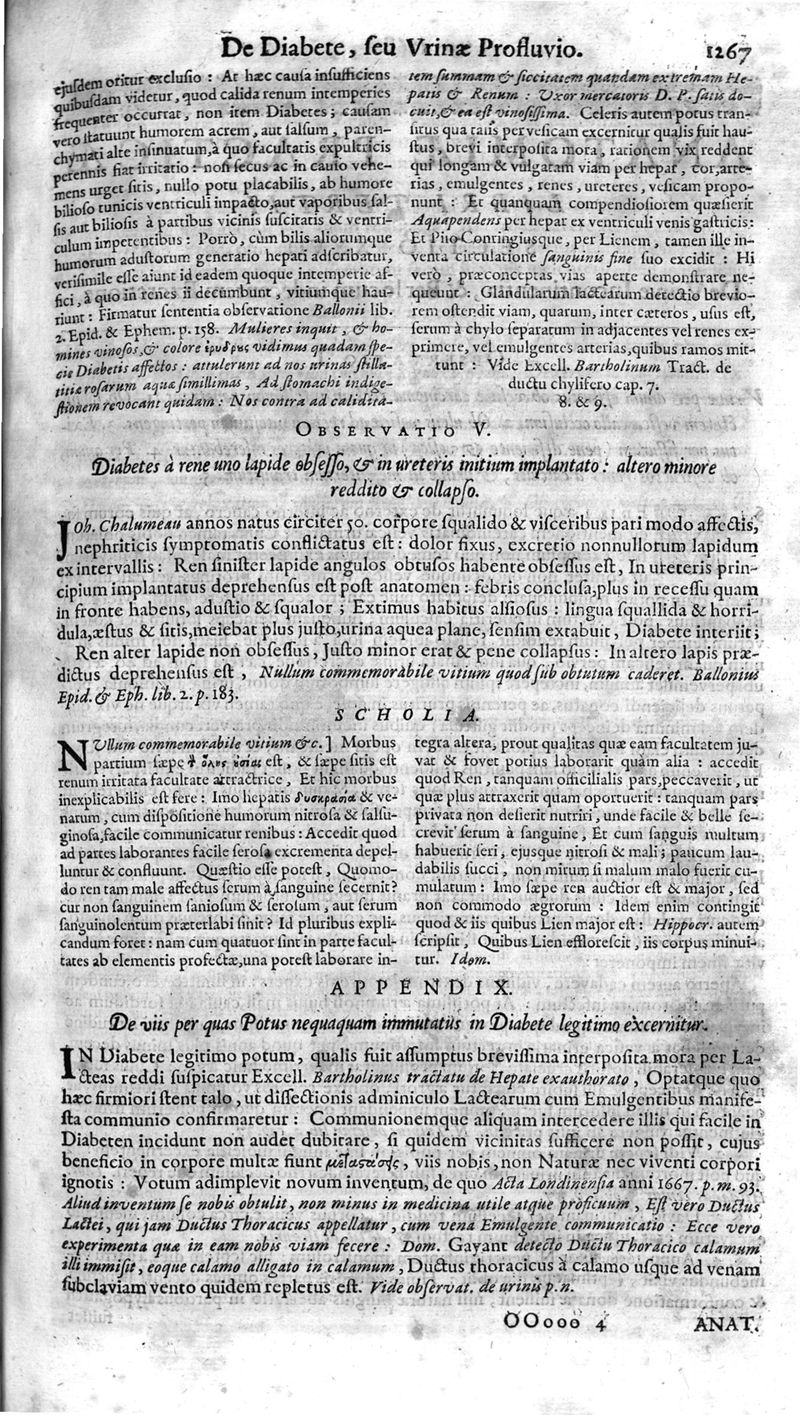 De Diabete, ſeu Vrinæ Profluvio. 1267
ejuſdem oritur excluſio : At hæc cauſa inſufficiens
quibuſdam videtur, quod calida renum intemperies
frequenter occurrat, non item Diabetes ; cauſam
vero ſtatuunt humorem acrem, aut ſalſum, paren-
chymati alte inſinuatum, à quo facultatis expultricis
perennis fiat irritatio : non ſecus ac in cauſo vehe-
mens urget ſitis, nullo potu placabilis, ab humore
bilioſo tunicis ventriculi impacto, aut vaporibus ſal-
ſis aut bilioſis à partibus vicinis ſuſcitatis & ventri-
culum impetentibus : Porrò, cùm bilis aliorumque
humorum aduſtorum generatio hepati adſcribatur,
veriſimile eſſe aiunt id eadem quoque intemperie af-
fici, à quo in renes ii decumbunt, vitiumque hau-
riunt : Firmatur ſententia obſervatione Ballonii lib.
2. Epid. & Ephem. p. 158. Mulieres inquit, & ho-
mines vinoſos, & colore ἐρυθροὺς vidimus quadam ſpe-
cie Diabetis affectos : attulerunt ad nos urinas ſtilla-
titiæ roſarum aquæ ſimillimas, Ad ſtomachi indige-
ſtionem revocant quidam : Nos contra ad calidita-
tem ſummam & ſiccitatem quandam extremam He-
patis & Renum : Uxor mercatoris D. P. ſatis do-
cuit, & ea eſt vinoſiſſima. Celeris autem potus tran-
ſitus qua talis per veſicam excernitur qualis fuit hau-
ſtus, brevi interpoſita mora, rationem vix reddent
qui longam & vulgatam viam per hepar, cor, arte-
rias, emulgentes, renes, ureteres, veſicam propo-
nunt : Et quanquam compendioſiorem quæſierit
Aquapendens per hepar ex ventriculi venis gaſtricis :
Et Piſo Contringiuſque, per Lienem, tamen ille in-
venta circulatione ſanguinis fine ſuo excidit : Hi
verò, præconceptas vias aperte demonſtrare ne-
queunt : Glandularum lactearum detectio brevio-
rem oſtendit viam, quarum, inter cæteros, uſus eſt,
ſerum à chylo ſeparatum in adjacentes vel renes ex-
primere, vel emulgentes arterias, quibus ramos mit-
tunt : Vide Excell. Bartholinum Tract. de
ductu chylifero cap. 7.
8. & 9.
OBSERVATIO V.
Diabetes à rene uno lapide obſeſſo, & in ureteris initium implantato : altero minore
reddito & collapſo.
Joh. Chalumeau annos natus circiter 50. corpore ſqualido & viſceribus pari modo affectis,
nephriticis ſymptomatis conflictatus eſt : dolor fixus, excretio nonnullorum lapidum
ex intervallis : Ren ſiniſter lapide angulos obtuſos habente obſeſſus eſt, In ureteris prin-
cipium implantatus deprehenſus eſt poſt anatomen : febris concluſa, plus in receſſu quam
in fronte habens, aduſtio & ſqualor ; Extimus habitus alſioſus : lingua ſquallida & horri-
dula, æſtus & ſitis, meiebat plus juſto, urina aquea plane, ſenſim extabuit, Diabete interiit ;
Ren alter lapide non obſeſſus, Juſto minor erat & pene collapſus : In altero lapis præ-
dictus deprehenſus eſt, Nullum commemoràbile vitium quod ſub obtutum caderet. Ballonius
Epid. & Eph. lib. 2. p. 183.
SCHOLIA.
NUllum commemorabile vitium &c.] Morbus
partium ſæpe τ̃ ὅλης ἐσίας eſt, & ſæpe ſitis eſt
renum irritata facultate attractrice, Et hic morbus
inexplicabilis eſt fere : Imo hepatis δυσκρασία & ve-
narum, cum diſpoſitione humorum nitroſa & ſalſu-
ginoſa, facile communicatur renibus : Accedit quod
ad partes laborantes facile ſeroſa excrementa depel-
luntur & confluunt. Quæſtio eſſe poteſt, Quomo-
do ren tam male affectus ſerum à ſanguine ſecernit?
cur non ſanguinem ſanioſum & ſeroſum, aut ſerum
ſanguinolentum præterlabi ſinit? Id pluribus expli-
candum foret : nam cum quatuor ſint in parte facul-
tates ab elementis profectæ, una poteſt laborare in-
tegra altera, prout qualitas quæ eam facultatem ju-
vat & fovet potius laborarit quàm alia : accedit
quod Ren, tanquam officialis pars, peccaverit, ut
quæ plus attraxerit quam oportuerit : tanquam pars
privata non deſierit nutriri, unde facile & belle ſe-
crevit ſerum à ſanguine, Et cum ſanguis multum
habuerit ſeri, ejuſque nitroſi & mali ; paucum lau-
dabilis ſucci, non mirum ſi malum malo fuerit cu-
mulatum : Imo ſæpe ren auctior eſt & major, ſed
non commodo ægrorum : Idem enim contingit
quod & iis quibus Lien major eſt : Hippocr. autem
ſcripſit, Quibus Lien effloreſcit, iis corpus minui-
tur. Idem.
APPENDIX.
De viis per quas Potus nequaquam immutatus in Diabete legitimo excernitur.
IN Diabete legitimo potum, qualis fuit aſſumptus breviſſima interpoſita mora per La-
cteas reddi ſuſpicatur Excell. Bartholinus tractatu de Hepate exauthorato, Optatque quo
hæc firmiori ſtent talo, ut diſſectionis adminiculo Lactearum cum Emulgentibus manife-
ſta communio confirmaretur : Communionemque aliquam intercedere illis qui facile in
Diabeten incidunt non audet dubitare, ſi quidem vicinitas ſufficere non poſſit, cujus
beneficio in corpore multæ fiunt μεταστάσεις, viis nobis, non Naturæ nec viventi corpori
ignotis : Votum adimplevit novum inventum, de quo Acta Londinenſia anni 1667. p. m. 93.
Aliud inventum ſe nobis obtulit, non minus in medicina utile atque proficuum, Eſt vero Ductus
Lactei, qui jam Ductus Thoracicus appellatur, cum vena Emulgente communicatio : Ecce vero
experimenta quæ in eam nobis viam fecere : Dom. Gayant detecto Ductu Thoracico calamum
illi immiſit, eoque calamo alligato in calamum, Ductus thoracicus à calamo uſque ad venam
ſubclaviam vento quidem repletus eſt. Vide obſervat. de urinis p. n.
OOooo 4 ANAT.